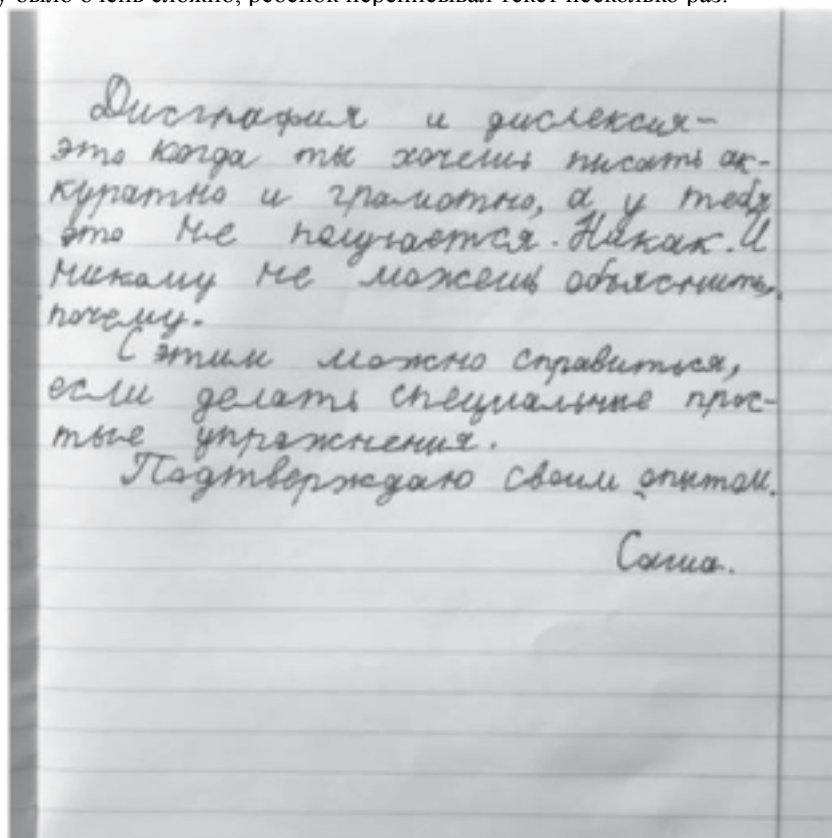 у было очень сложно, ребенок переписывал текст несколько раз.
Дисграфия и дислексия-
это когда ты хочешь писать ак-
куратно и грамотно, а у тебя
это не получается. Никак. И
никому не можешь объяснить,
почему.
С этим можно справиться,
если делать специальные прос-
тые упражнения.
Подтверждаю своим опытом.
Саша.